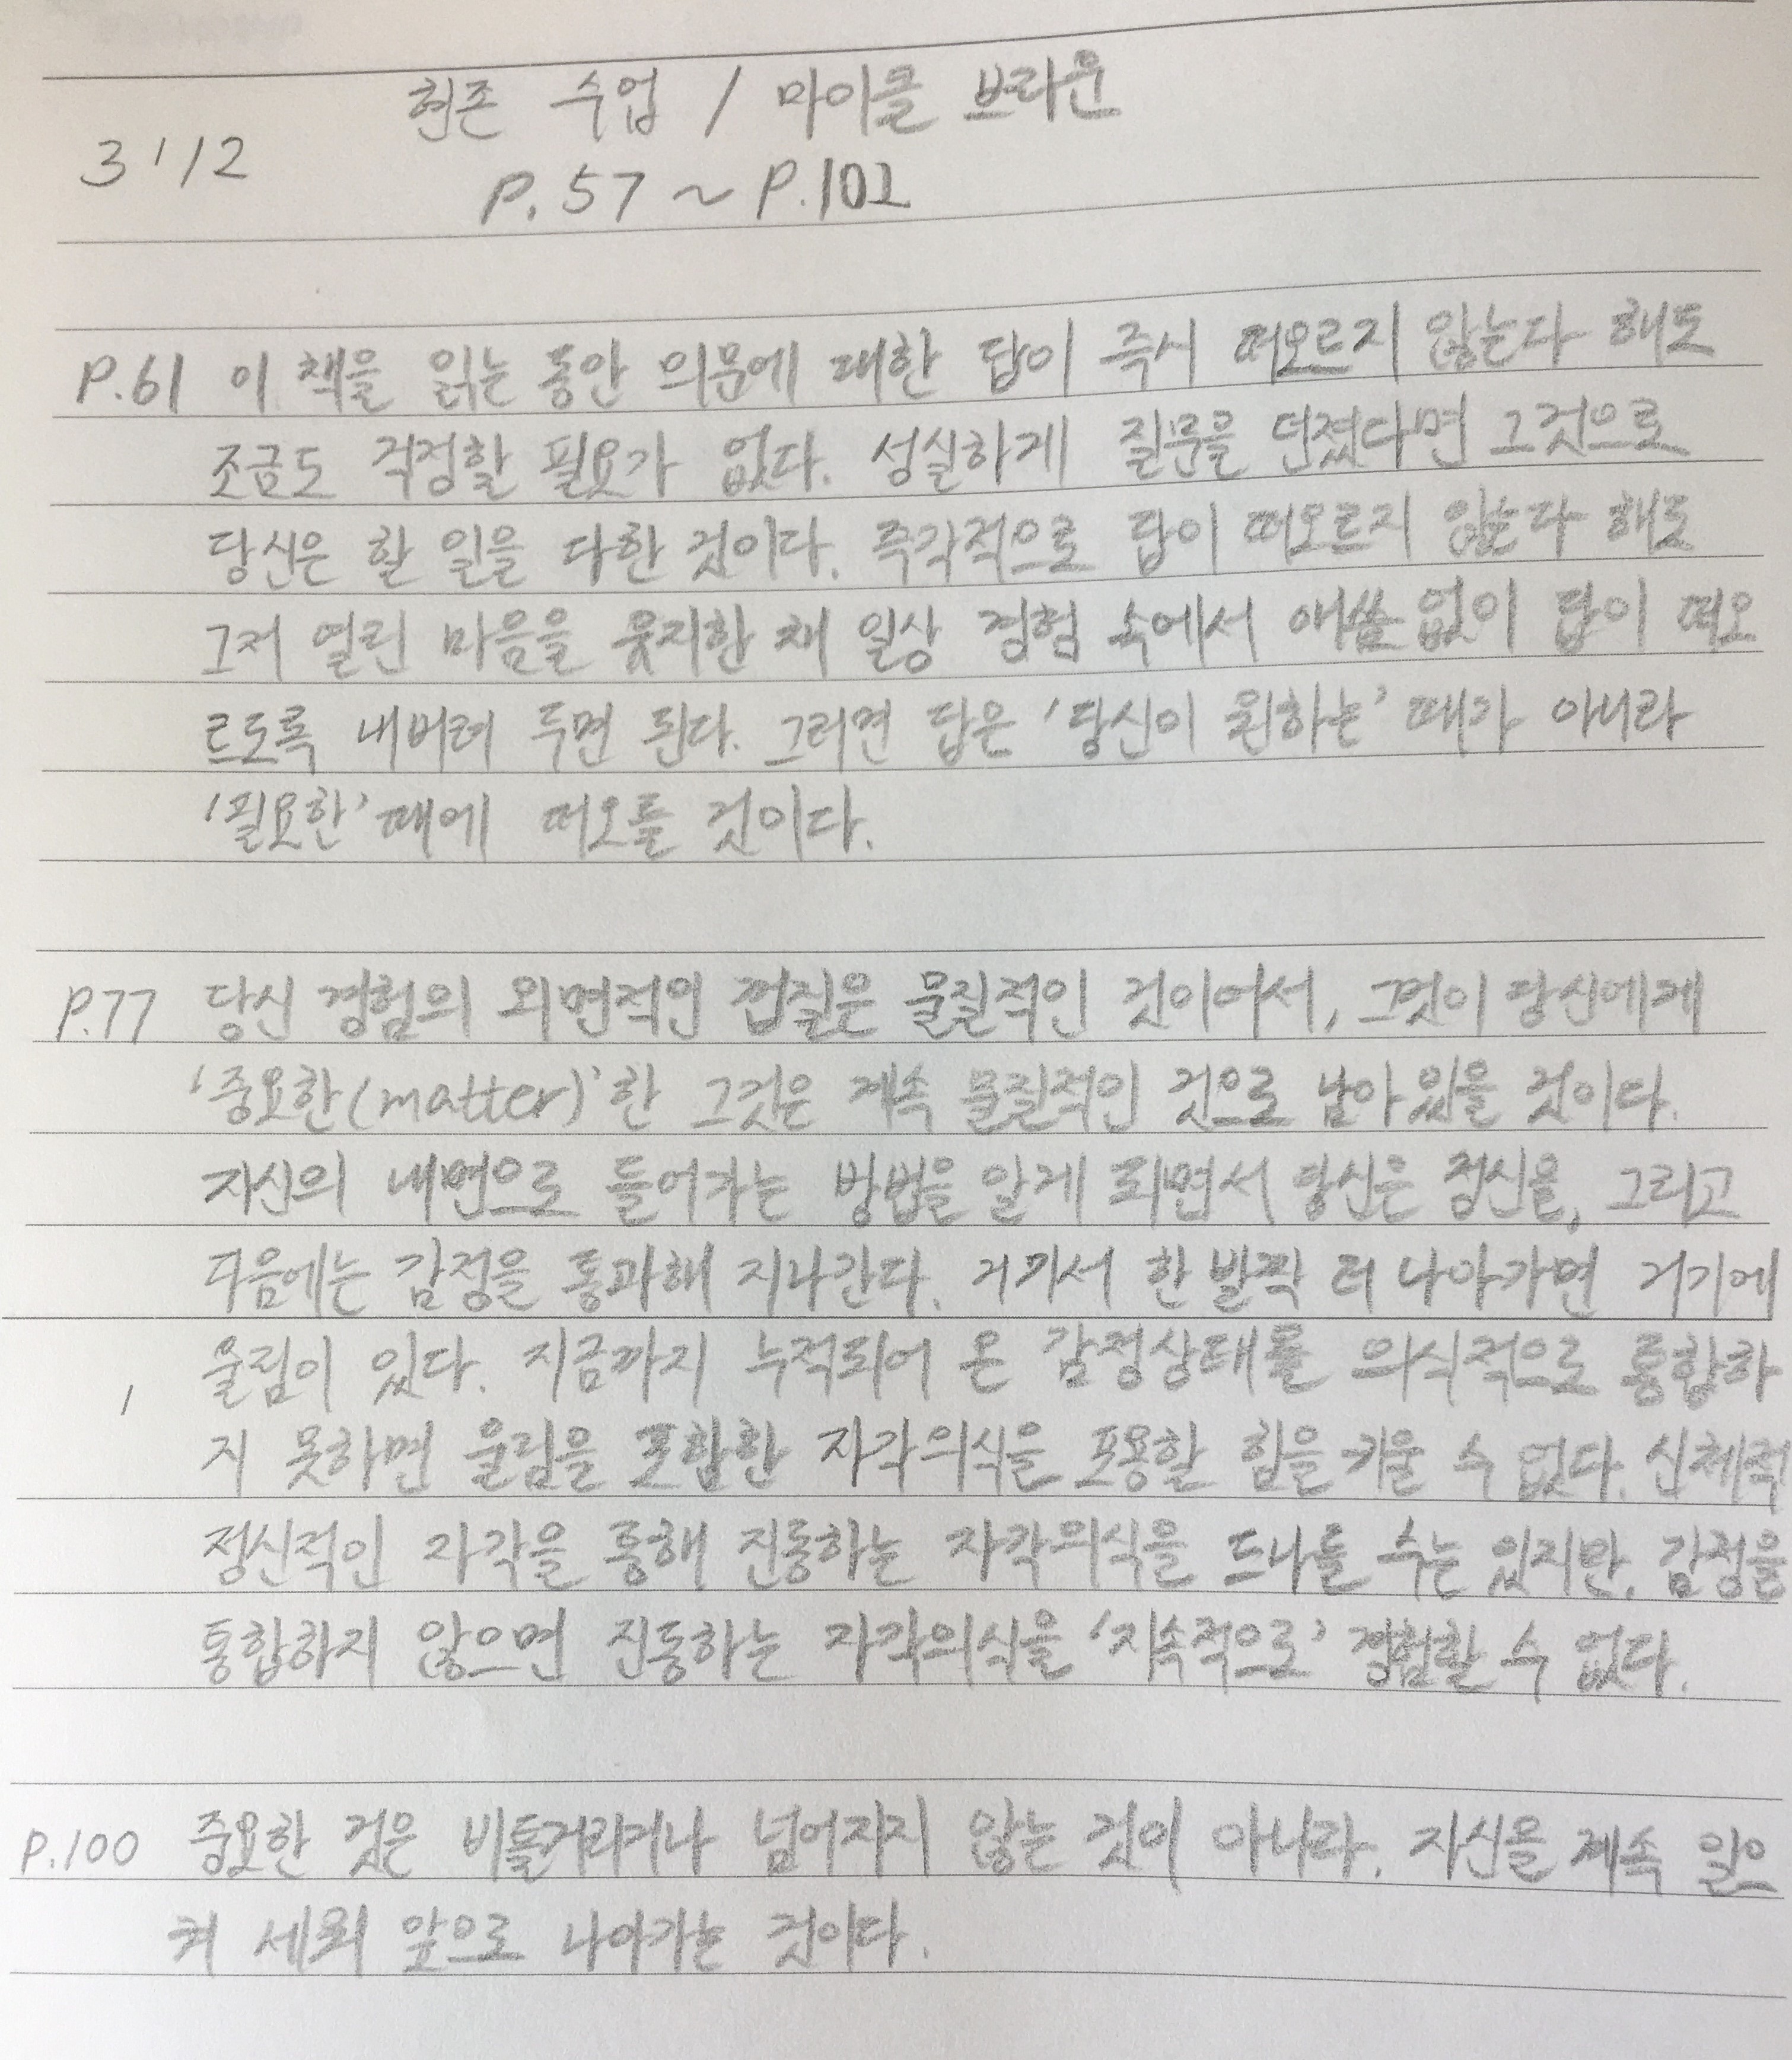 현존 수업 / 마이클 브라운
3 / 12
P. 57 ~ P.102
P.61 이 책을 읽는 동안 의문에 대한 답이 즉시 떠오르지 않는다 해도
조금도 걱정할 필요가 없다. 성실하게 질문을 던졌다면 그것으로
당신은 할 일을 다한 것이다. 즉각적으로 답이 떠오르지 않는다 해도
그저 열린 마음을 유지한 채 일상 경험 속에서 애씀 없이 답이 떠오
르도록 내버려 두면 된다. 그러면 답은 '당신이 원하는' 때가 아니라
'필요한' 때에 떠오를 것이다.
P.77 당신 경험의 외면적인 껍질은 물질적인 것이어서, 그것이 당신에게
'중요한(matter)'한 그것은 계속 물질적인 것으로 남아 있을 것이다.
자신의 내면으로 들어가는 방법을 알게 되면서 당신은 정신을, 그리고
다음에는 감정을 통과해 지나간다. 거기서 한 발짝 더 나아가면 거기에
울림이 있다. 지금까지 누적되어 온 감정상태를 의식적으로 통합하
지 못하면 울림을 포함한 자각의식을 포용할 힘을 키울 수 없다. 신체적
정신적인 자각을 통해 진동하는 자각의식을 드나들 수는 있지만, 감정을
통합하지 않으면 진동하는 자각의식을 '지속적으로' 경험할 수 없다.
P.100 중요한 것은 비틀거리거나 넘어지지 않는 것이 아니다. 자신을 계속 일으
켜 세워 앞으로 나아가는 것이다.